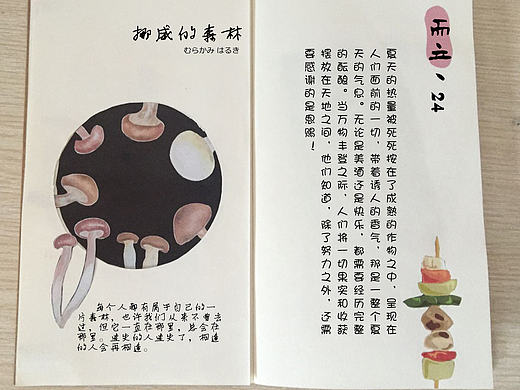 挪威的森林
むらかみ はるき
每个人都有属于自己的一
片森林，也许我们从来不曾去
过，但它一直在那里，总会在
那里。迷失的人迷失了，相逢
的人会再相逢。
而立、24
夏天的热量被死死按在了成熟的作物之中，呈现在
人们面前的一切，带着诱人的香气，那是一整个夏
天的气息。无论是美酒还是快乐，都需要经历完整
的酝酿。当万物丰登之际，人们将一切果实和收获
摆放在天地之间，他们知道，除了努力之外，还需
要感谢的是恩赐！